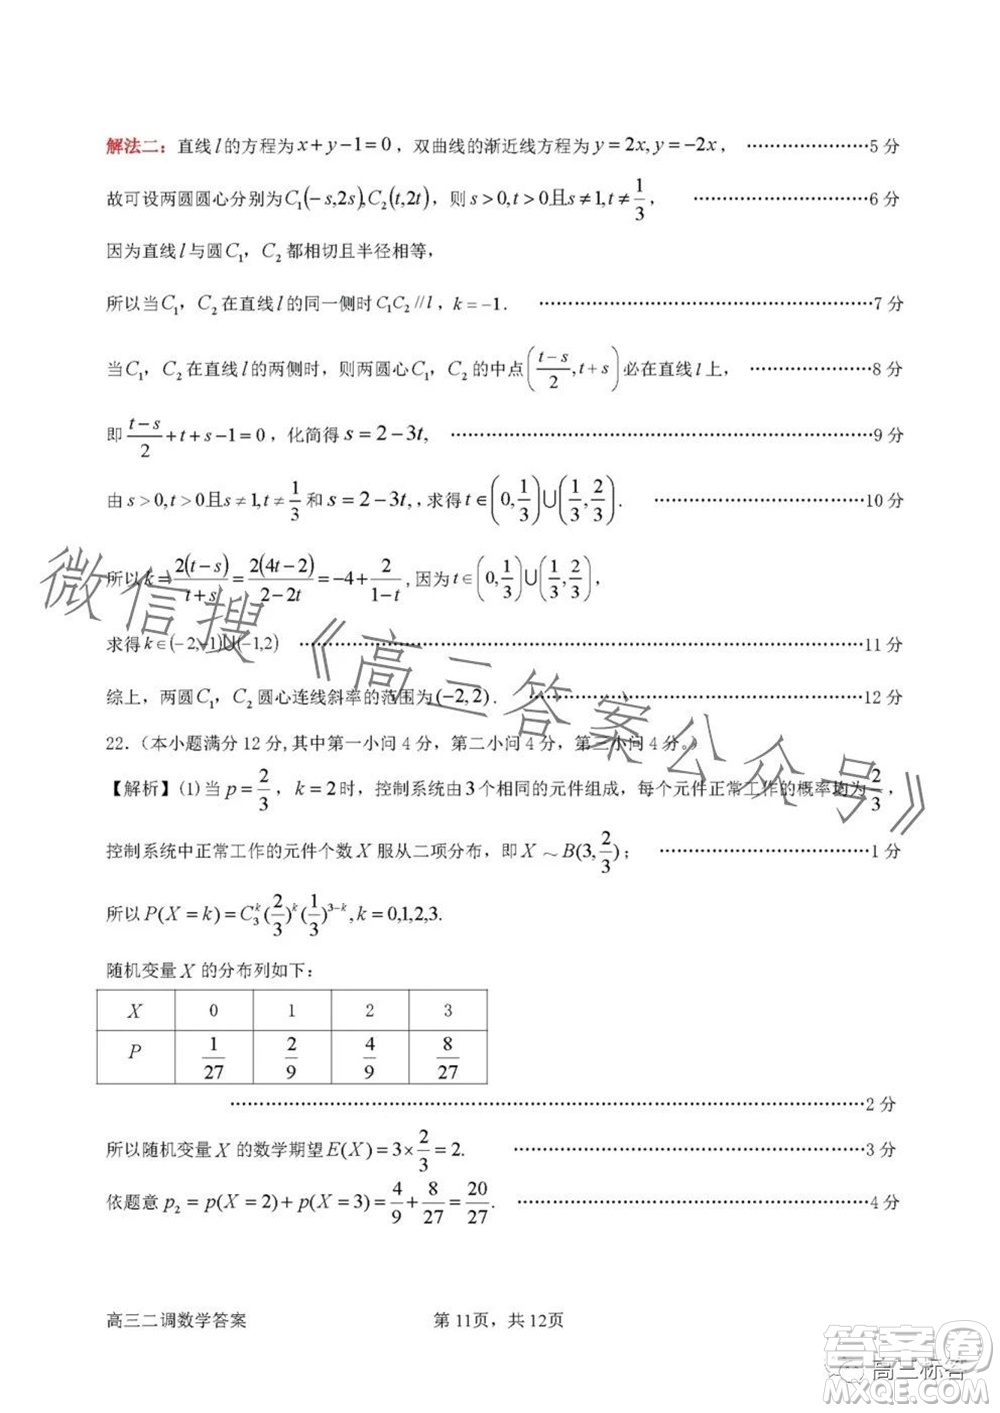 解法二：直线 l 的方程为 x+y−1=0，双曲线的渐近线方程为 y=2x, y=−2x， ……………………5 分
故可设两圆圆心分别为 C₁(−s,2s), C₂(t,2t)，则 s>0, t>0且s≠1, t≠1/3， ……………………6 分
因为直线 l 与圆 C₁，C₂ 都相切且半径相等，
所以当 C₁，C₂ 在直线 l 的同一侧时 C₁C₂ // l，k=−1． ……………………7 分
当 C₁，C₂ 在直线 l 的两侧时，则两圆心 C₁，C₂ 的中点 ((t−s)/2, t+s) 必在直线 l 上， ……………………8 分
即 (t−s)/2+t+s−1=0，化简得 s=2−3t, ……………………9 分
由 s>0, t>0且s≠1, t≠1/3 和 s=2−3t,，求得 t∈(0,1/3)∪(1/3,2/3). ……………………10 分
所以 k=2(t−s)/(t+s)=2(4t−2)/(2−2t)=−4+2/(1−t), 因为 t∈(0,1/3)∪(1/3,2/3)，
求得 k∈(−2,−1)∪(−1,2) ……………………11 分
综上，两圆 C₁，C₂ 圆心连线斜率的范围为 (−2,2)． ……………………12 分
22．（本小题满分 12 分,其中第一小问 4 分，第二小问 4 分，第三小问 4 分。）
【解析】(1)当 p=2/3，k=2 时，控制系统由 3 个相同的元件组成，每个元件正常工作的概率均为 2/3，
控制系统中正常工作的元件个数 X 服从二项分布，即 X ~ B(3,2/3)； ……………………1 分
所以 P(X=k)=C₃ᵏ(2/3)ᵏ(1/3)³⁻ᵏ, k=0,1,2,3.
随机变量 X 的分布列如下：
X 0 1 2 3
P 1/27 2/9 4/9 8/27
……………………2 分
所以随机变量 X 的数学期望 E(X)=3×2/3=2. ……………………3 分
依题意 p₂=p(X=2)+p(X=3)=4/9+8/27=20/27. ……………………4 分
高三二调数学答案 第 11页，共 12页
微信搜《高三答案公众号》
高三标答
答案圈
MXQE.COM